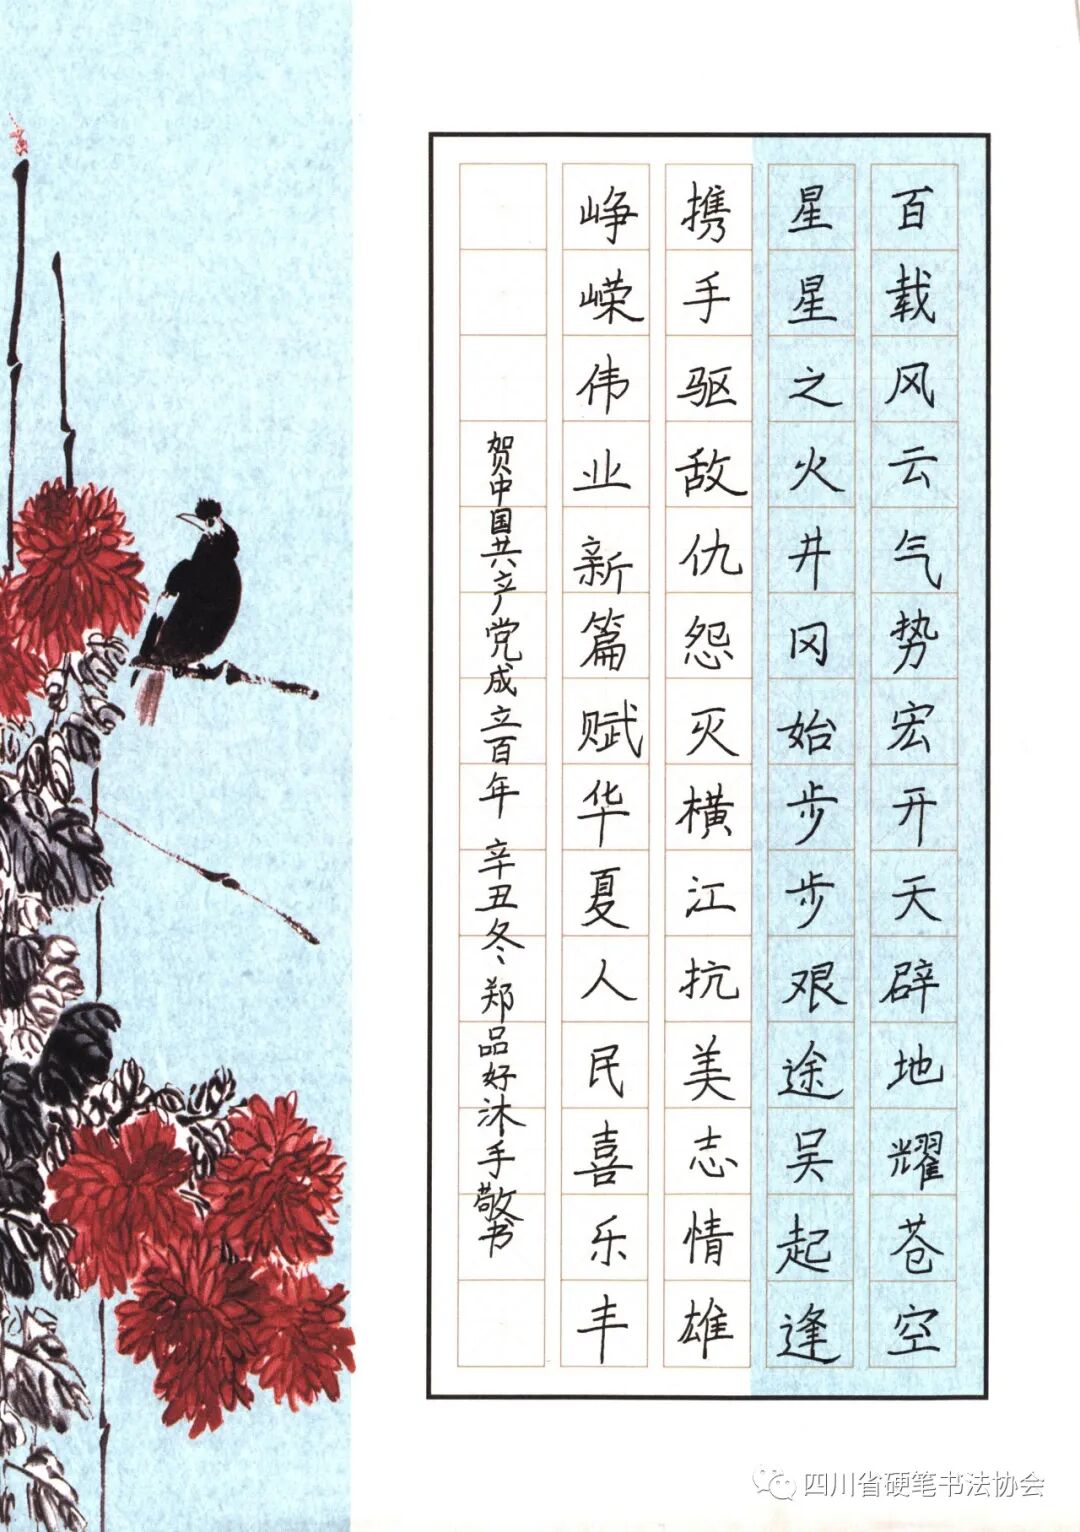 百载风云气势宏开天辟地耀苍空
星星之火井冈始步步艰途吴起逢
携手驱敌仇怨灭横江抗美志情雄
峥嵘伟业新篇赋华夏人民喜乐丰
贺中国共产党成立百年 辛丑冬 郑品好沐手敬书
四川省硬笔书法协会